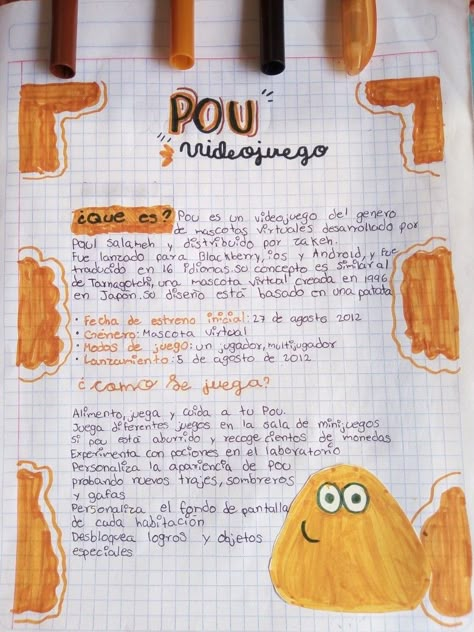 POU
videojuego
¿Que es? Pou es un videojuego del genero
de mascotas virtuales desarrollado por
Paul Salameh y distribuido por Zakeh.
Fue lanzado para Blackberry, ios y Android, y fue
traducido en 16 idiomas. su concepto es similar al
de Tamagotchi, una mascota virtual creada en 1996
en Japón. su diseño está basado en una patata
• Fecha de estreno inicial: 27 de agosto 2012
• Género: Mascota virtual
• Modos de juego: un jugador, multijugador
• Lanzamiento: 5 de agosto de 2012
¿como se juega?
Alimento, juega y cuida a tu Pou.
Juega diferentes juegos en la sala de minijuegos
si pou está aburrido y recoge cientos de monedas
Experimenta con pociones en el laboratorio
Personaliza la apariencia de Pou
probando nuevos trajes, sombreros
y gafas
Personaliza el fondo de pantalla
de cada habitación
Desbloquea logros y objetos
especiales